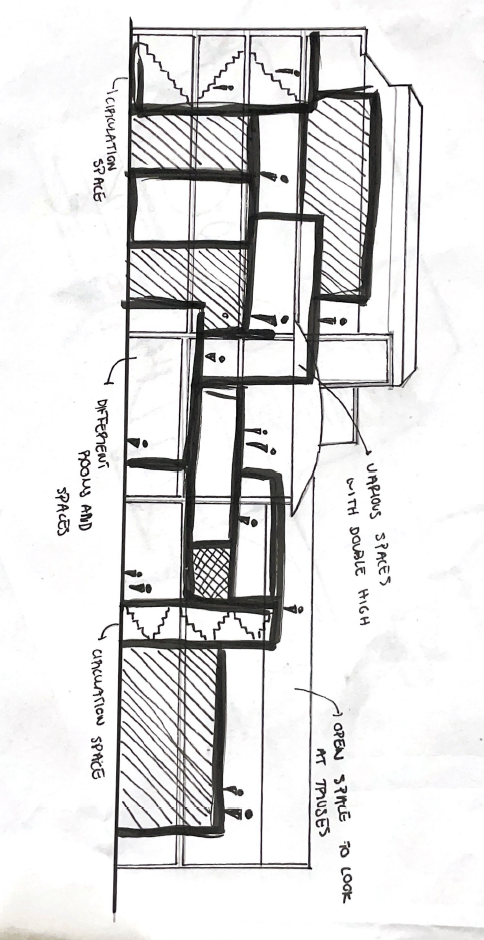 CIRCULATION
SPACE
DIFFERENT
ROOMS AND
SPACES
CIRCULATION SPACE
VARIOUS SPACES
WITH DOUBLE HIGH
OPEN SPACE TO LOOK
AT